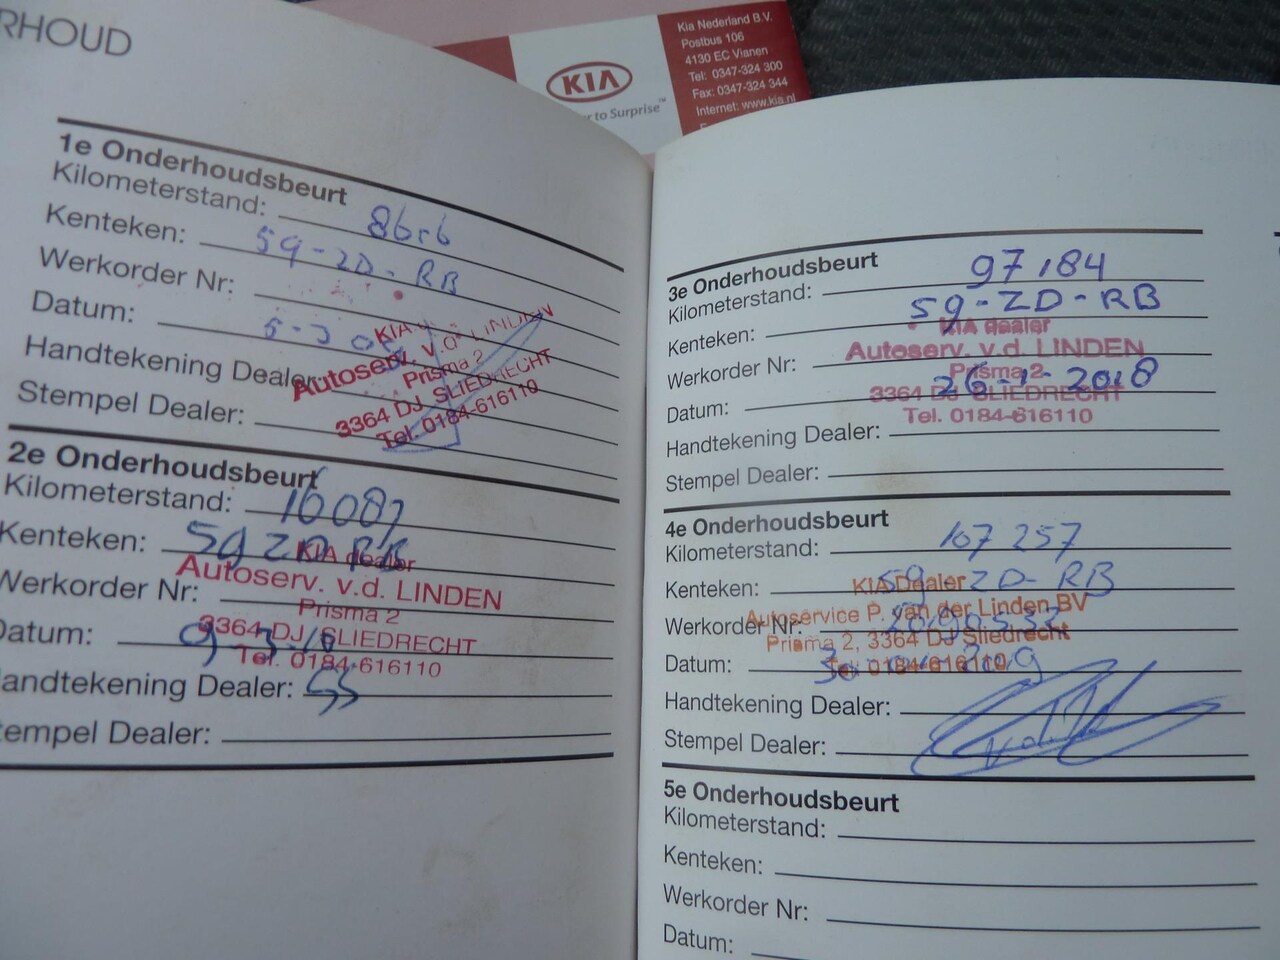 RHOUD
KIA
to Surprise™
Kia Nederland B.V.
Postbus 106
4130 EC Vianen
Tel: 0347-324 300
Fax: 0347-324 344
Internet: www.kia.nl
1e Onderhoudsbeurt
Kilometerstand:
Kenteken: 59-ZD-RB
Werkorder Nr:
Datum:
Handtekening Dealer:
Stempel Dealer:
KIA
Autoserv. v.d. LINDEN
Prisma 2
3364 DJ SLIEDRECHT
Tel. 0184-616110
2e Onderhoudsbeurt
Kilometerstand: 16087
Kenteken: 59 ZD RB
Werkorder Nr:
Datum:
Handtekening Dealer:
Stempel Dealer:
KIA dealer
Autoserv. v.d. LINDEN
Prisma 2
3364 DJ SLIEDRECHT
Tel. 0184-616110
3e Onderhoudsbeurt
Kilometerstand: 97184
Kenteken: 59-ZD-RB
Werkorder Nr:
Datum: 26-1-2018
Handtekening Dealer:
Stempel Dealer:
KIA dealer
Autoserv. v.d. LINDEN
Prisma 2
3364 DJ SLIEDRECHT
Tel. 0184-616110
4e Onderhoudsbeurt
Kilometerstand: 107 257
Kenteken: 59 ZD-RB
Werkorder Nr:
Datum:
Handtekening Dealer:
Stempel Dealer:
KIA Dealer
Autoservice P. van der Linden BV
Prisma 2, 3364 DJ Sliedrecht
Tel. 0184-616110
5e Onderhoudsbeurt
Kilometerstand:
Kenteken:
Werkorder Nr:
Datum: